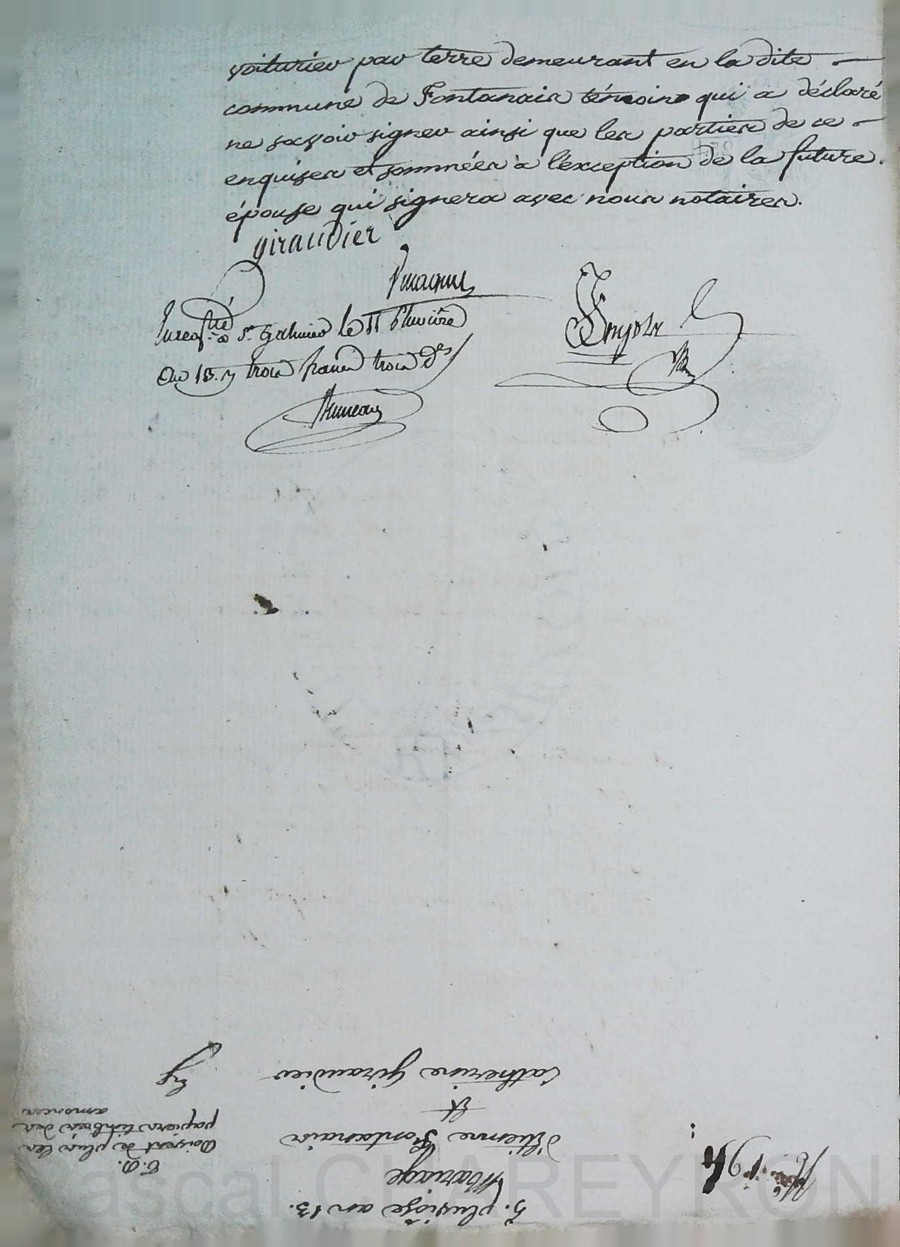 voiturier par terre demeurant en la dite
commune de Fontanais témoins qui a déclaré
ne sçavoir signer ainsi que les parties de ce
enquises et sommées à l'exception de la future
épouse qui signera avec nous notaires.
giraudier
Enregtré à St. Galmier le 11 Pluviôse
an 13. trois francs trois
5. pluviôse an 13.
Mariage
Etienne Fontanais
Et
Catherine Giraudier
doivent de plus les
papiers timbrés des
annonces
Pascal CHAREYRON